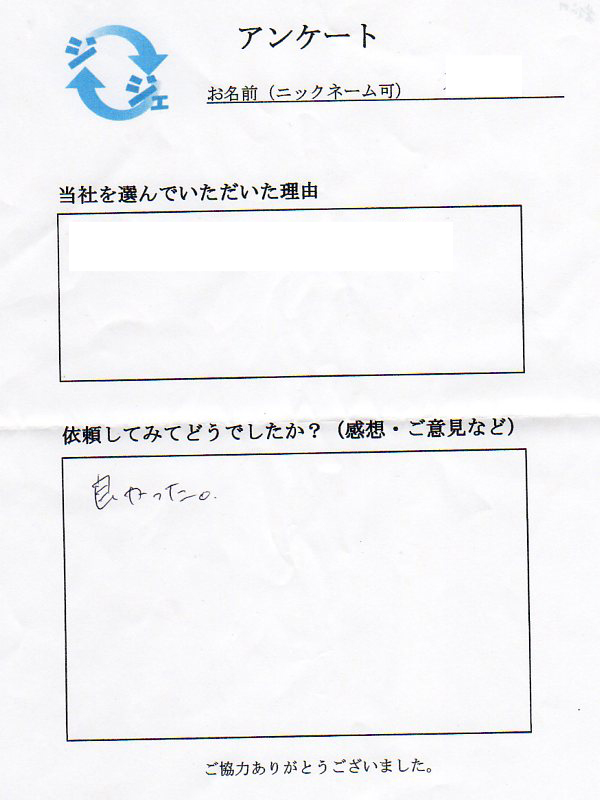 ジジェ
アンケート
お名前（ニックネーム可）
当社を選んでいただいた理由
依頼してみてどうでしたか？（感想・ご意見など）
良かった。
ご協力ありがとうございました。